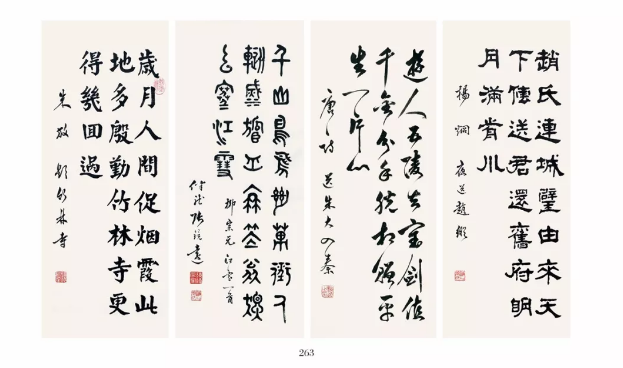 趙氏連城璧由來天
下傳送君還舊府明
月滿前川
楊炯 夜送趙縱
遊人五陵去寶劍值
千金分手脫相贈平
生一片心
唐 送朱大入秦
千山鳥飛絕萬徑人
蹤滅孤舟蓑笠翁獨
釣寒江雪
柳宗元 江雪一首
歲月人間促烟霞此
地多殷勤竹林寺更
得幾回過
朱放 題竹林寺
263